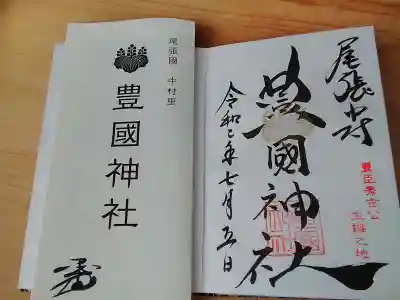 尾張國 中村里
豊國神社
尾張中村
豊臣秀吉公
生誕之地
豊國神社
令和 年七月五日